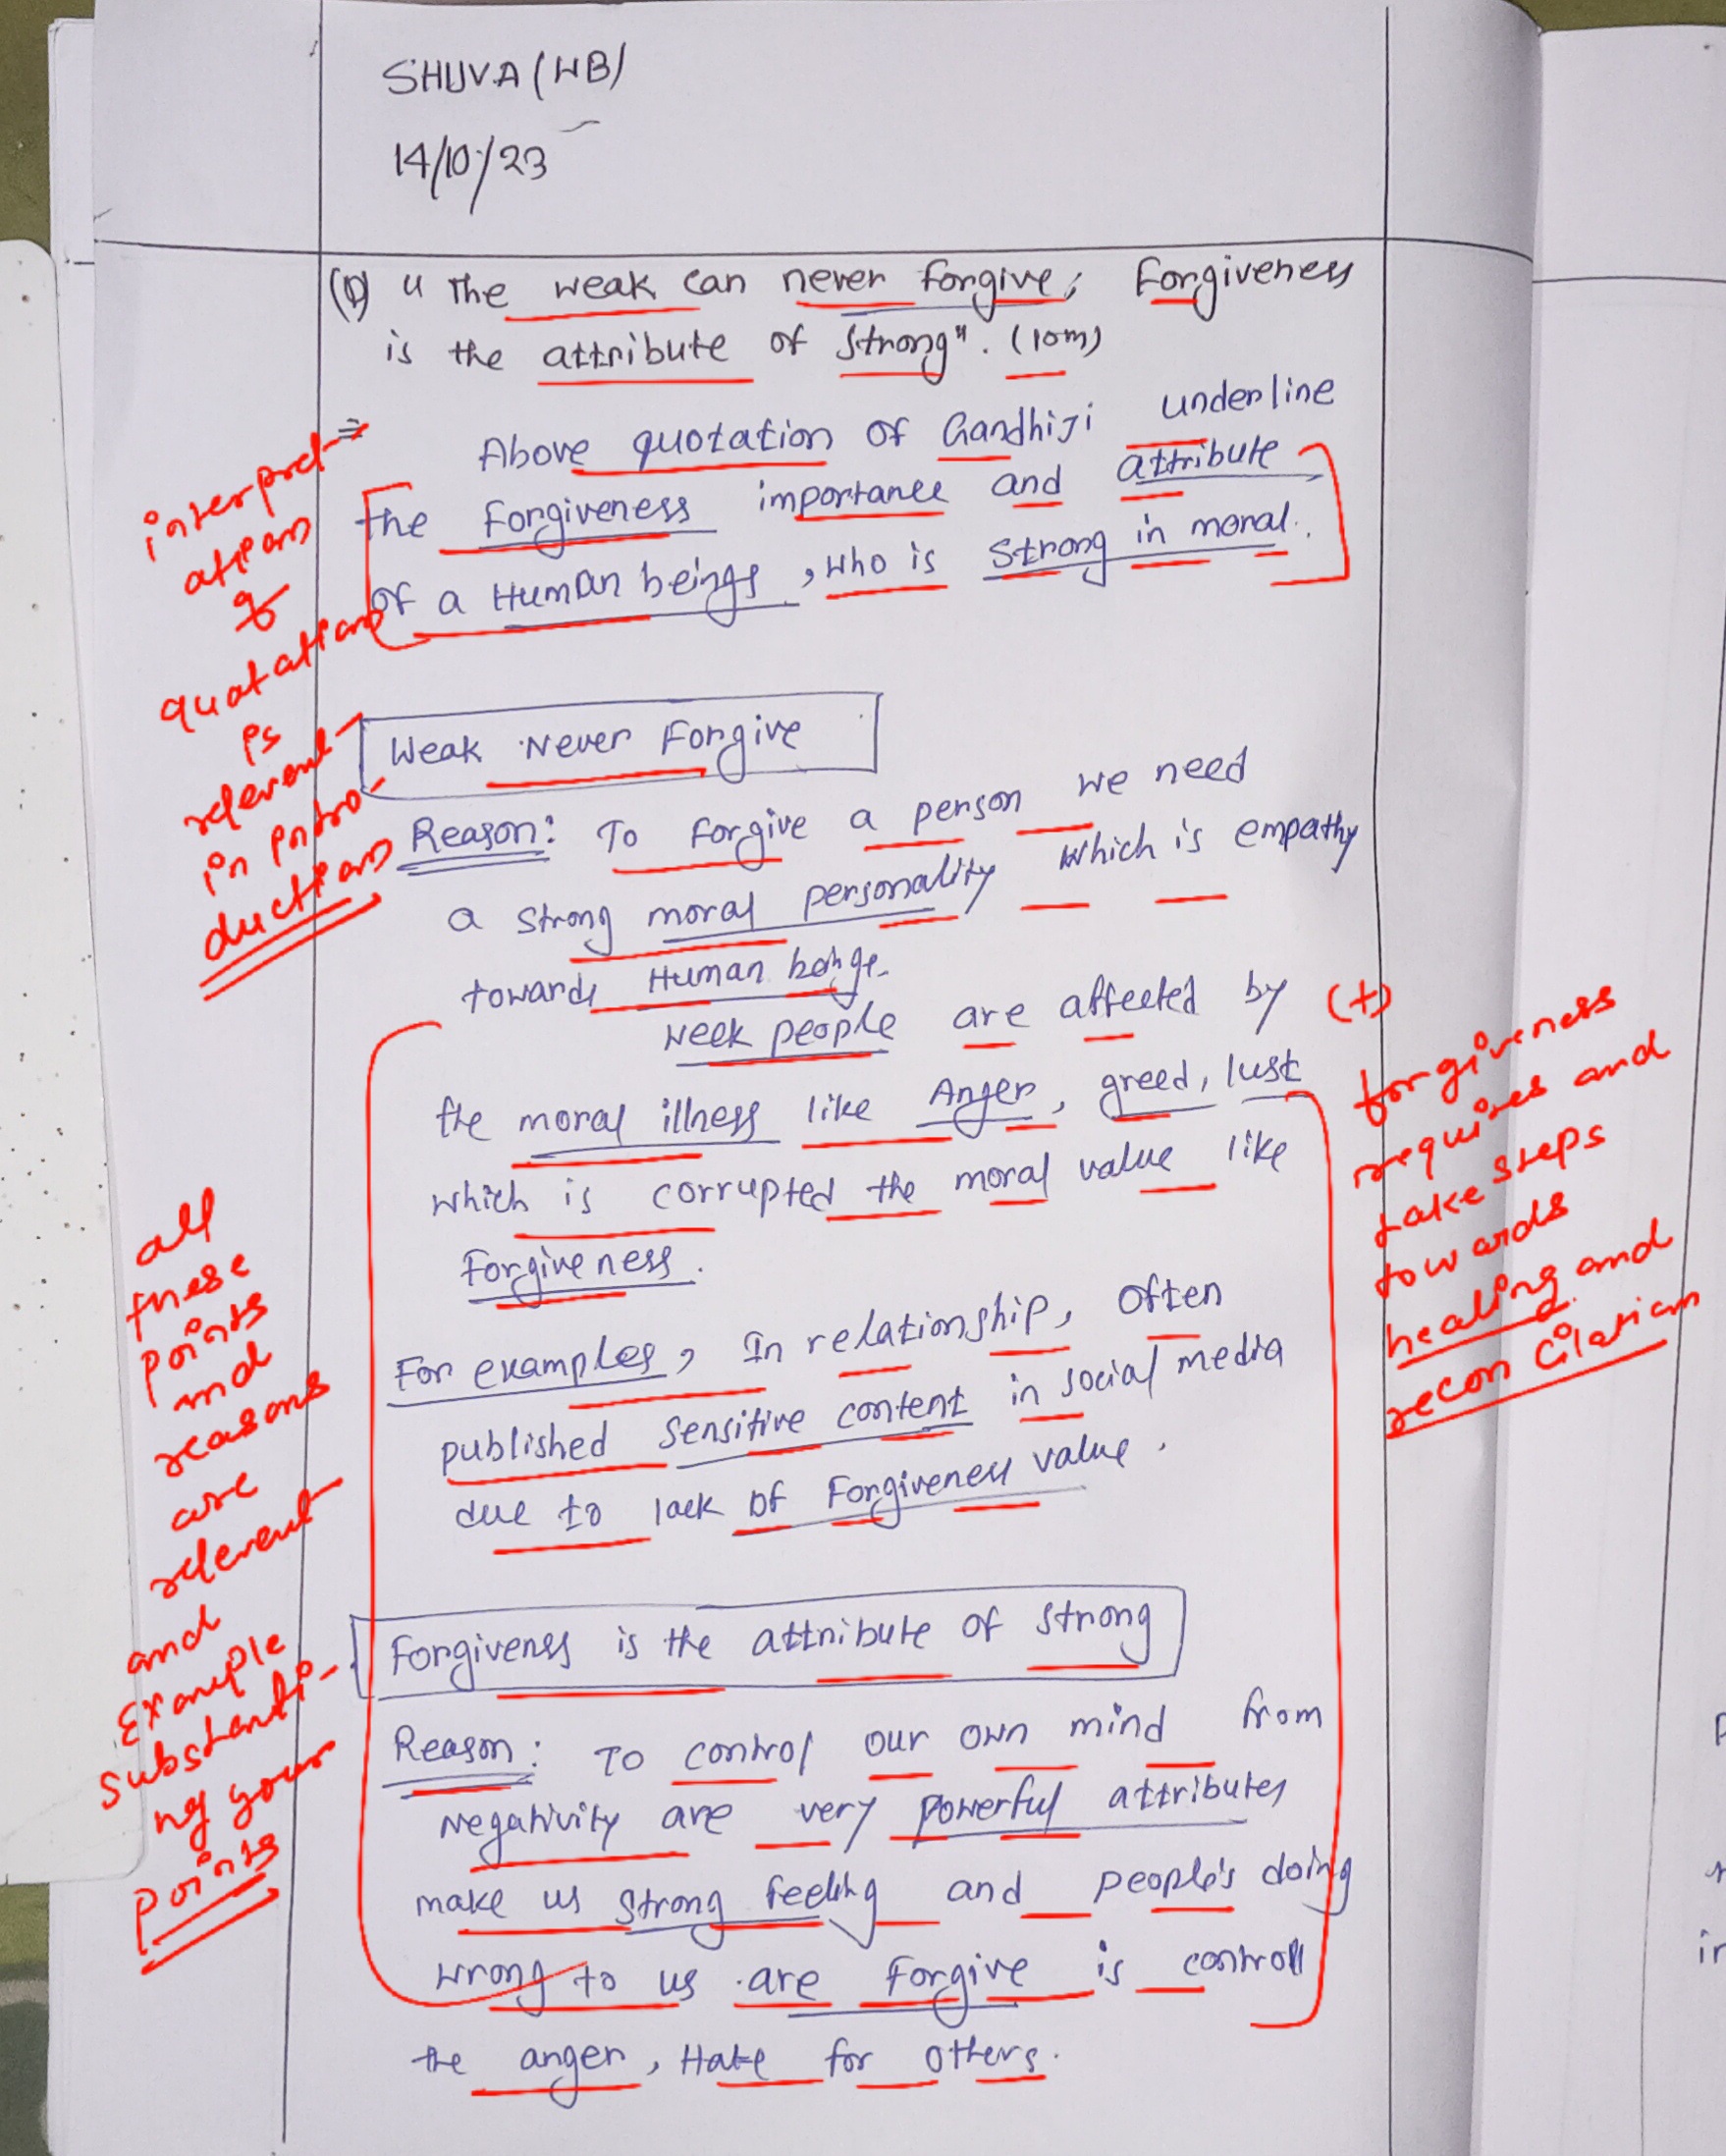 SHUVA (WB)
14/10/23
(1) "The weak can never forgive; Forgiveness
is the attribute of strong". (10m)
⇒ Above quotation of Gandhiji underline
the Forgiveness importance and attribute
of a Human beings, who is strong in moral.
interpret-
ation
of
quatation
is
relevent
in intro-
duction
Weak Never Forgive
Reason: To forgive a person we need
a strong moral personality which is empathy
towards Human beings.
week people are affected by
the moral illness like Anger, greed, lust
which is corrupted the moral value like
Forgiveness.
For examples, In relationship, often
published sensitive content in social media
due to lack of Forgiveness value.
(+)
forgiveness
requires and
take steps
towards
healing and
reconcilation
Forgiveness is the attribute of strong
Reason: To control our own mind from
Negativity are very powerful attributes
make us strong feeling and people's doing
wrong to us are Forgive is controll
the anger, Hate for others.
all
these
points
and
reasons
are
relevent
and
Example
substanti-
ng your
points